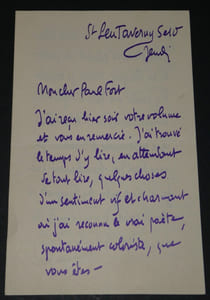 St Leu Taverny S et O
Jeudi
Mon cher Paul Fort
J'ai reçu hier soir votre volume
et vous en remercie. J'ai trouvé
le temps d'y lire, en attendant
de tout lire, quelques choses
d'un sentiment vif et charmant
où j'ai reconnu le vrai poète,
spontanément coloriste, que
vous êtes —